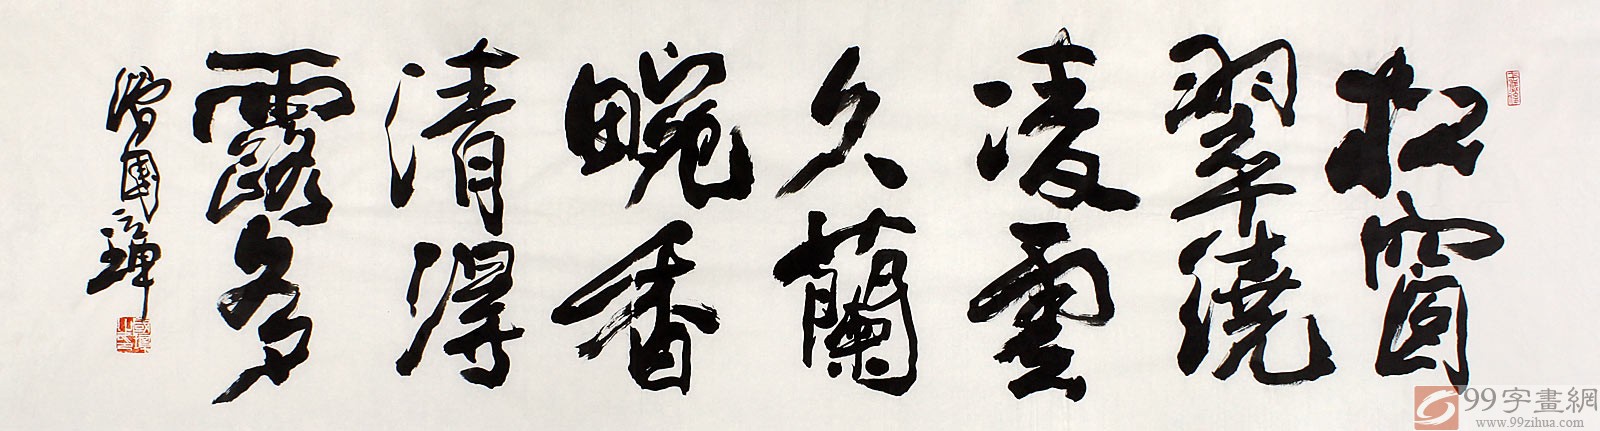 松窗
翠绕
凌雲
久蘭
畹香
清得
露多
國璋
99字畫網
www.99zihua.com